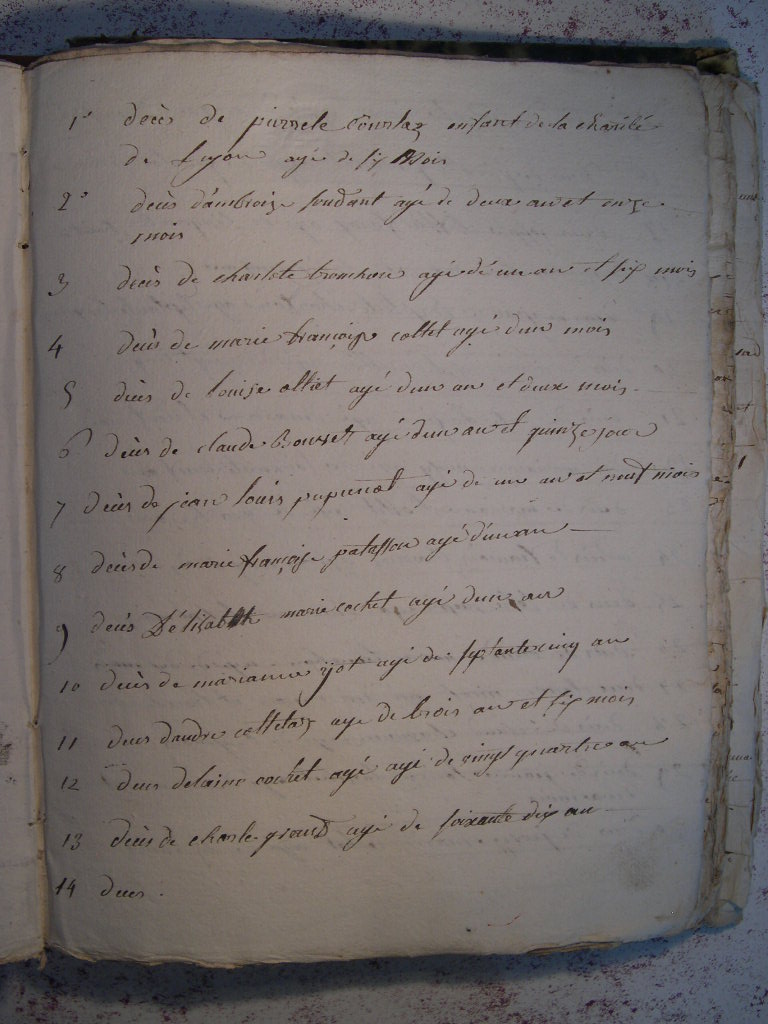 1° decès de pierrele Courlaz enfant de la charité
de Lyon agé de six Mois
2° decès dambroize soudant agé de deux an et onze
mois
3 decès de charlote agé dé un an et six mois
4 decès de marie françoise collet agé dun mois
5 decès de louise olliet agé dun an et deux mois
6 decès de claude Bousset agé dun an et quinze jour
7 decès de jean louis agé de un an et neuf mois
8 decès de marie françoise agé dun an
9 decès Délizabeth marie cochet agé dun an
10 decès de marianne yot agé de septante cinq an
11 deces dandre colletaz age de trois an et six mois
12 deces cochet agé agé de vingt quartre an
13 decès de charle giroud agé de soixante dix an
14 deces .